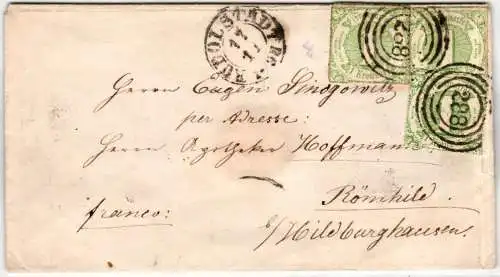 RUDOLSTADT
17
11
287
288
Herrn Eugen Sinogowitz
per Adresse:
Herrn Apotheker Hoffmann
Römhild
franco:
s/Hildburghausen.